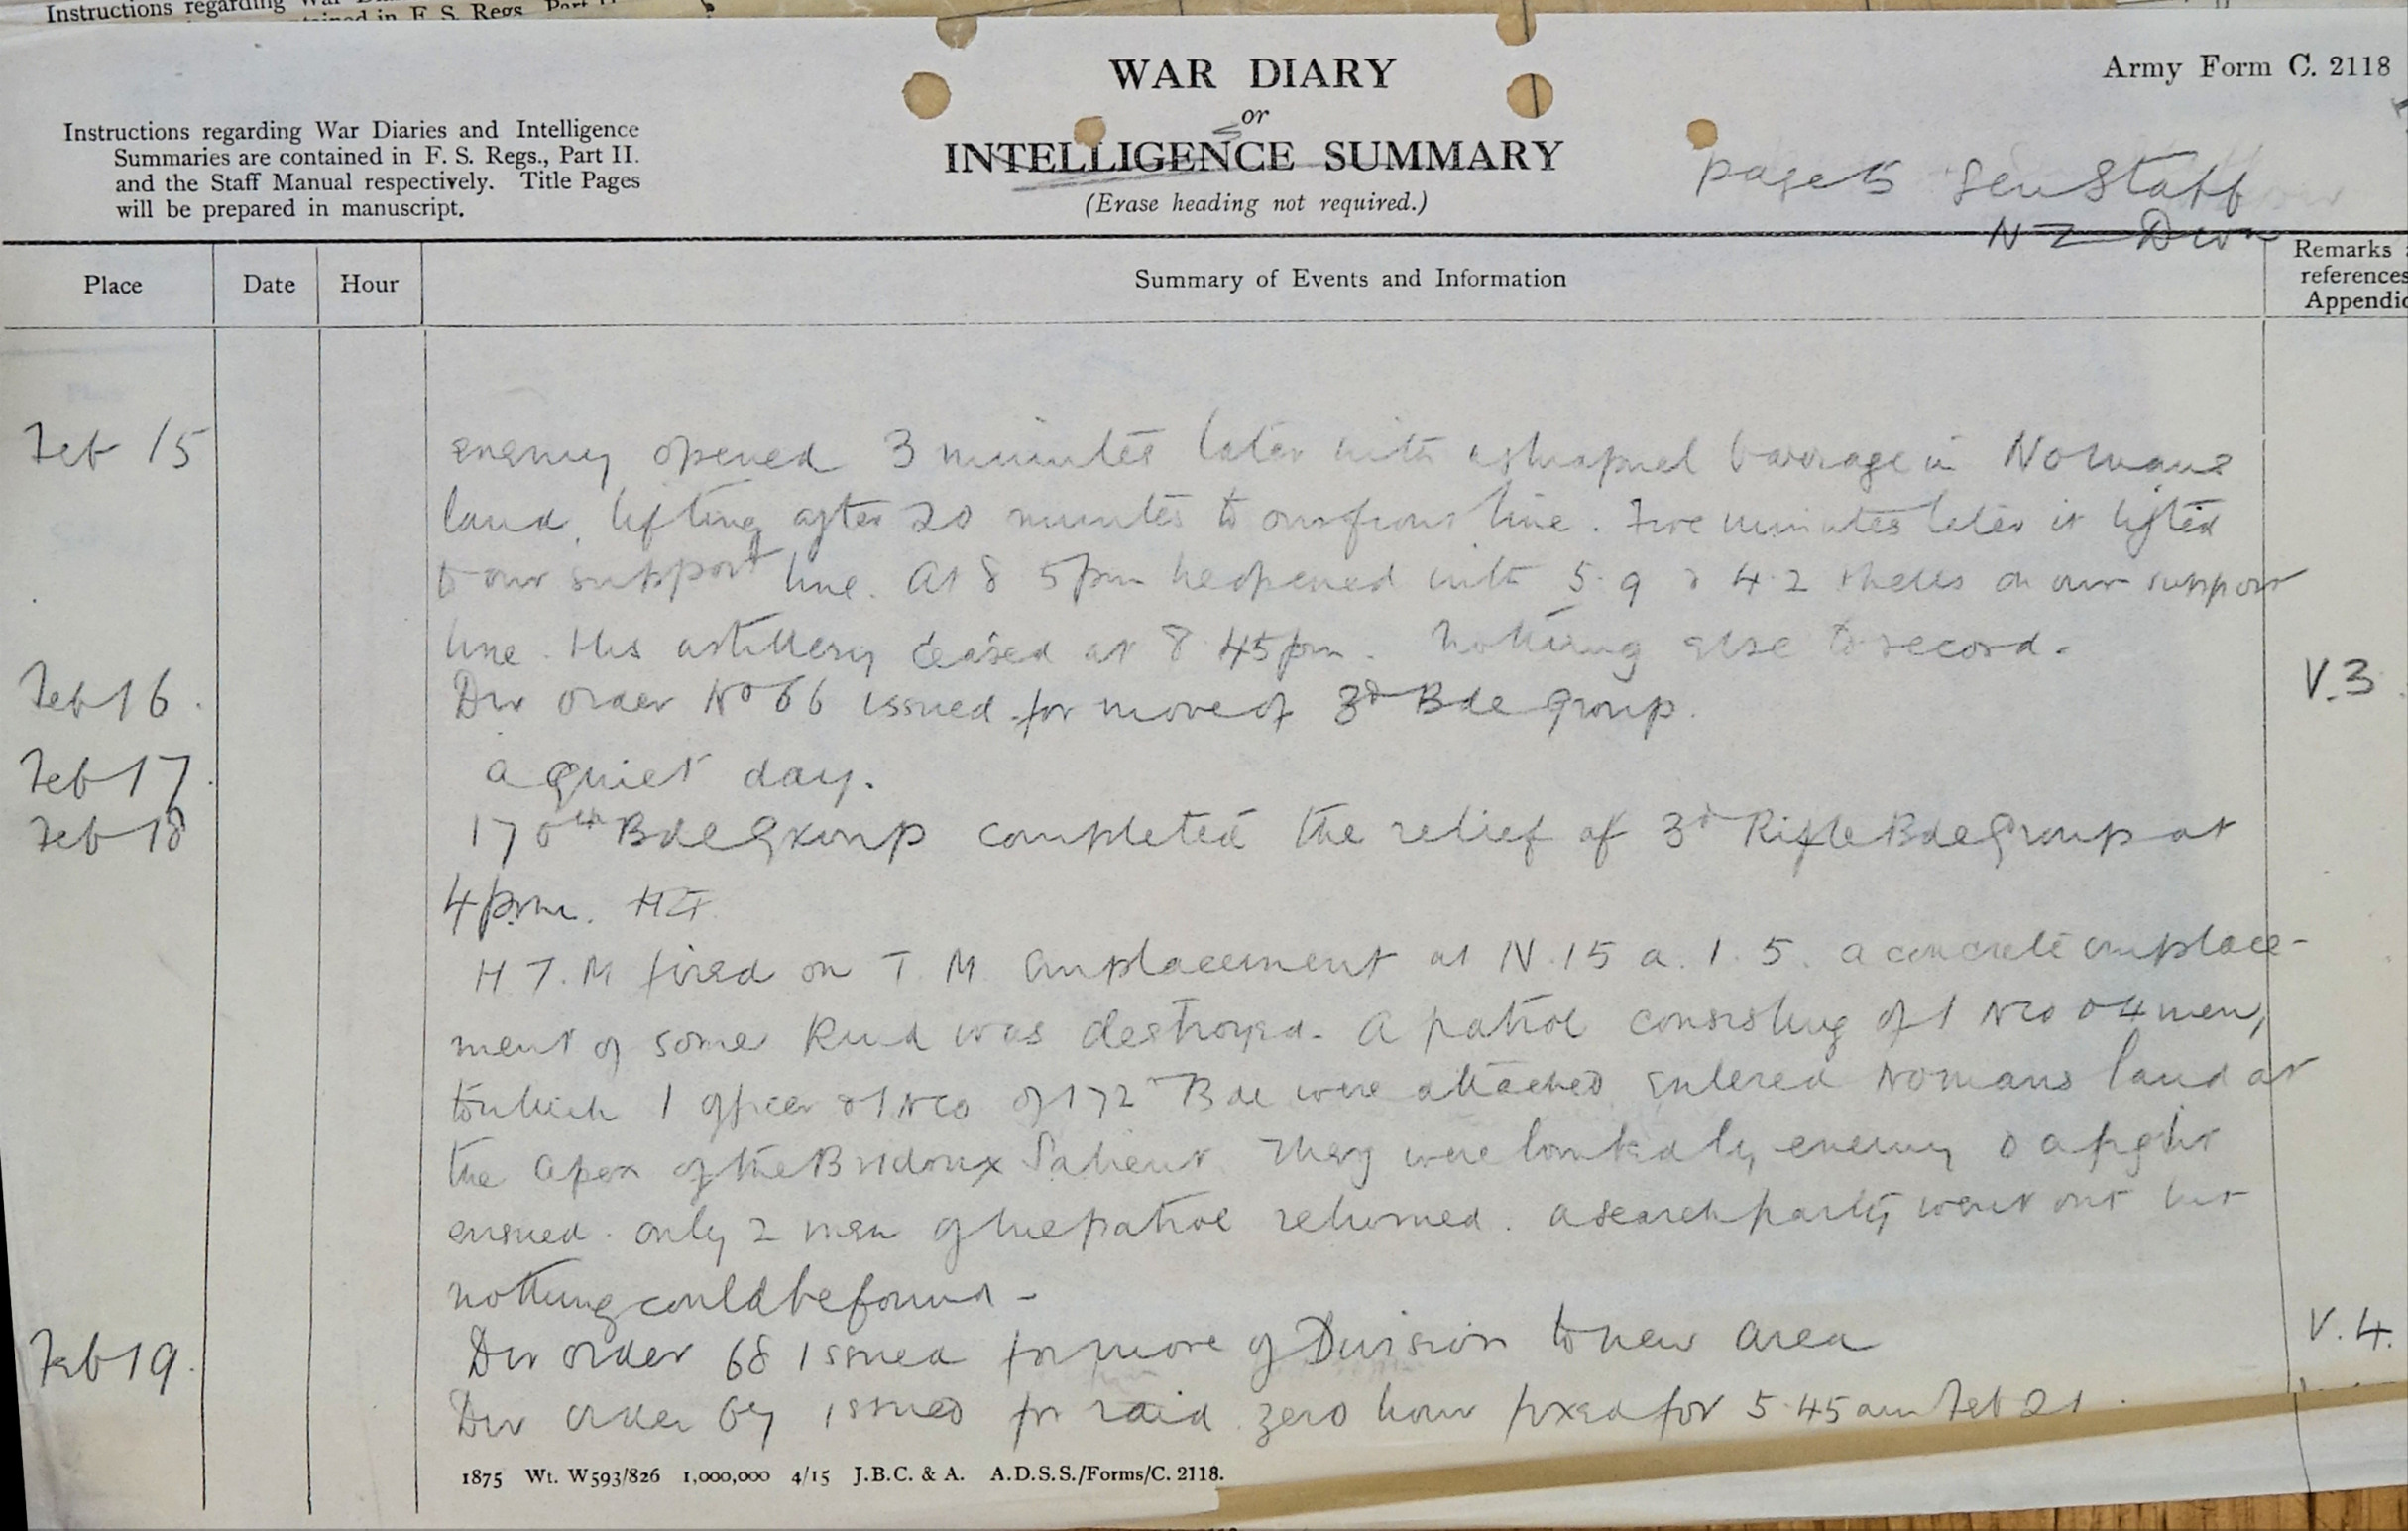 Instructions regarding War
tained in F. S. Regs. Part
WAR DIARY
or
INTELLIGENCE SUMMARY
(Erase heading not required.)
Army Form C. 2118
Instructions regarding War Diaries and Intelligence
Summaries are contained in F. S. Regs., Part II.
and the Staff Manual respectively. Title Pages
will be prepared in manuscript.
page 5 Gen Staff
N Z Divn
Place Date Hour Summary of Events and Information Remarks
references
Appendic
Feb 15 enemy opened 3 minutes later with a shrapnel barrage in Nomans
land, lifting after 20 minutes to our front line. Five minutes later it lifted
to our support line. At 8 5pm he opened with 5.9 & 4.2 shells on our support
line. His artillery ceased at 8.45pm. Nothing else to record.
Feb 16. Div order No 66 issued for move of 3d Bde Group. V.3
Feb 17. a quiet day.
Feb 18 170th Bde Group completed the relief of 3d Rifle Bde Group at
4pm.
H.T.M fired on T.M. emplacement at N.15 a.1.5. a concrete emplace-
ment of some kind was destroyed. A patrol consisting of 1 NCO & 4 men,
to which 1 officer & 1 NCO of 172 Bde were attached entered Nomans land at
the apex of the Bridoux Salient. They were bombed by enemy & a fight
ensued. only 2 men of the patrol returned. a search party went out but
nothing could be found -
Feb 19. Div order 68 issued for move of Division to new area V.4.
Div order 67 issued for raid. zero hour fixed for 5.45 am Feb 21.
1875 Wt. W593/826 1,000,000 4/15 J.B.C. & A. A.D.S.S./Forms/C. 2118.